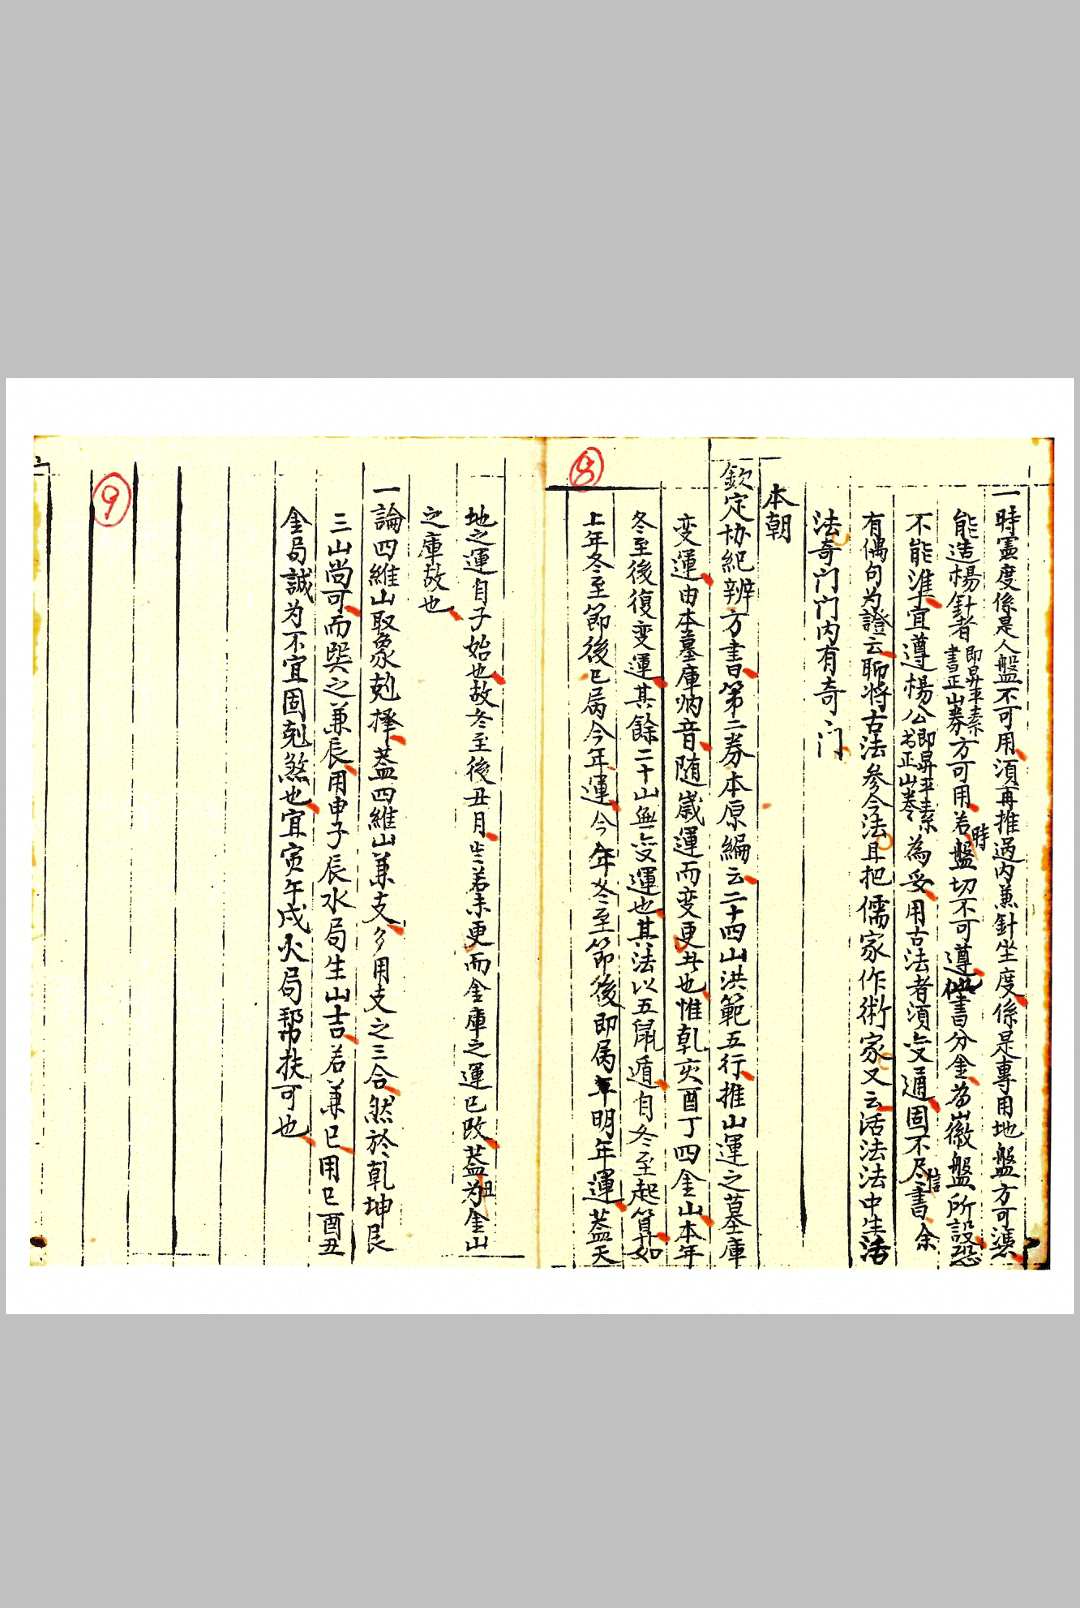 一時憲度係是人盤不可用須再推過內兼針坐度係是專用地盤方可準
能造楊針者即昇平素書正山券方可用若時盤切不可遵他書分金為徽盤所設恐
不能準宜遵楊公即昇平素書正山券為妥用古法者須变通固不尽信書余
有偶句為證云聊將古法參今法且把儒家作術家又云活法法中生活
法奇门门內有奇门
本朝
欽定协紀辨方書第二券本原編云二十四山洪範五行推山運之墓庫
变運由本墓庫納音随歲運而变更者也惟乾亥酉丁四金山本年
冬至後復变運其餘二十山無变運也其法以五鼠遁自冬至起算如
上年冬至節後已屬今年運今年冬至節後即屬明年運蓋天
8
地之運自子始也故冬至後丑月岂若未更而金庫之運已改蓋丑為金山
之庫故也
一論四維山取象剋擇蓋四維山兼支多用支之三合然於乾坤艮
三山尚可而巽之兼辰用申子辰水局生山吉若兼巳用巳酉丑
金局誠为不宜固剋煞也宜寅午戌火局帮扶可也
9